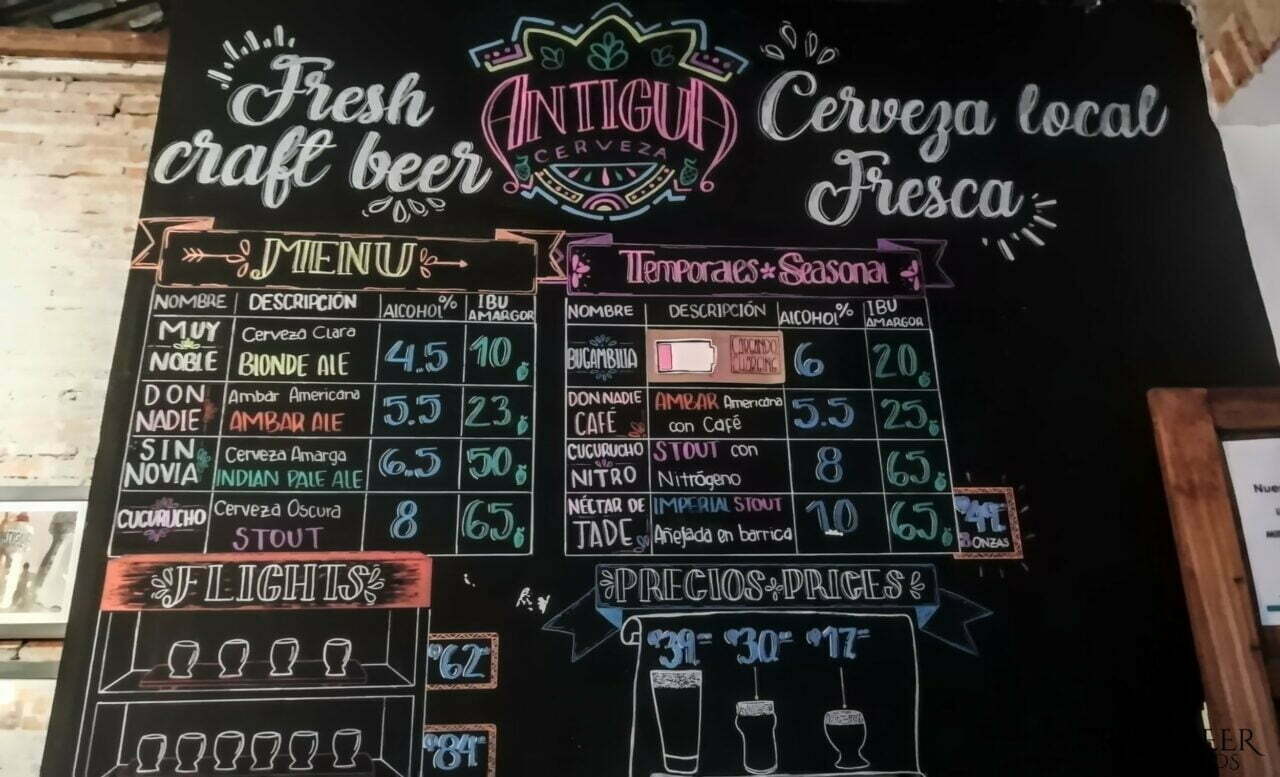 Fresh
craft beer
ANTIGUA
CERVEZA
Cerveza local
Fresca
MENU
NOMBRE DESCRIPCIÓN ALCOHOL% IBU AMARGOR
MUY NOBLE Cerveza Clara BLONDE ALE 4.5 10
DON NADIE Ambar Americana AMBAR ALE 5.5 23
SIN NOVIA Cerveza Amarga INDIAN PALE ALE 6.5 50
CUCURUCHO Cerveza Oscura STOUT 8 65
Temporales * Seasonal
NOMBRE DESCRIPCIÓN ALCOHOL% IBU AMARGOR
BUGAMBILIA CARGANDO 6 20
DON NADIE CAFÉ AMBAR Americana con Café 5.5 25
CUCURUCHO NITRO STOUT con Nitrógeno 8 65
NÉCTAR DE JADE IMPERIAL STOUT Añejada en barrica 10 65
ONZAS
FLIGHTS
Q62
Q84
PRECIOS PRICES
Q39 Q30 Q17
EER
DS